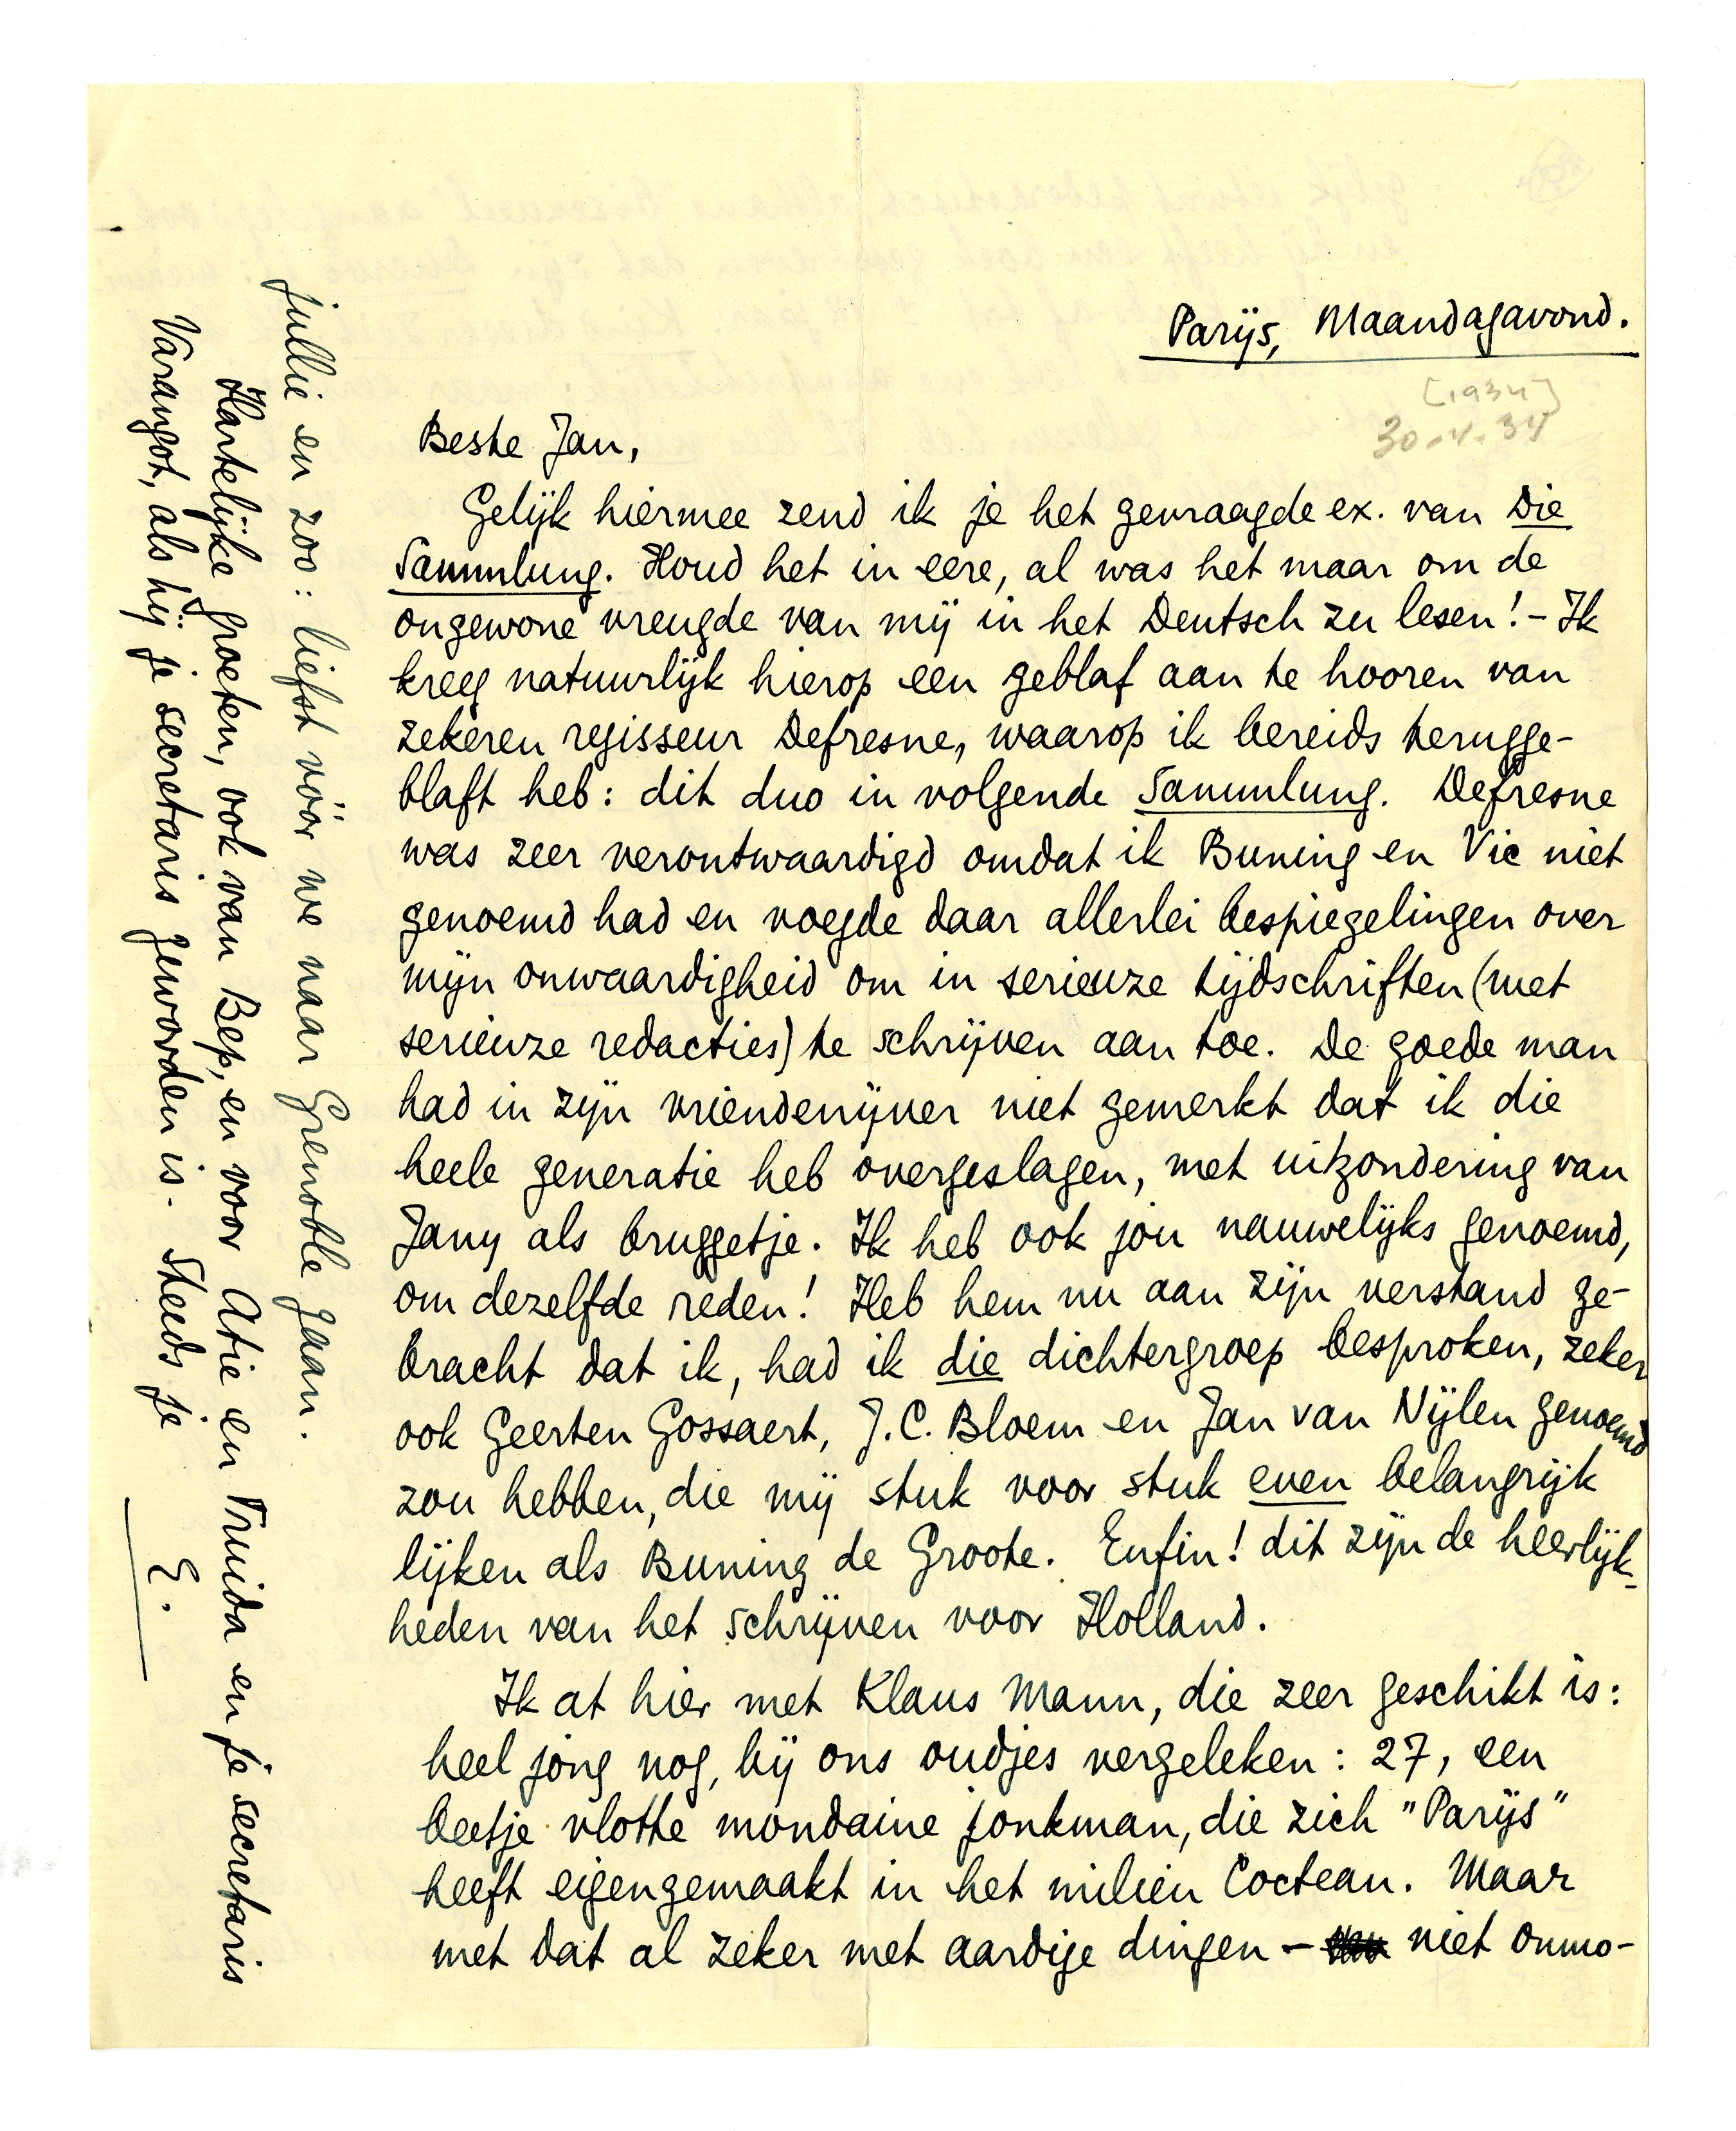 Parijs, Maandagavond.
[1934]
30-4-34
Beste Jan,
Gelijk hiermee zend ik je het gevraagde ex. van Die
Sammlung. Houd het in eere, al was het maar om de
ongewone vreugde van mij in het Deutsch zu lesen! - Ik
kreeg natuurlijk hierop een geblaf aan te hooren van
zekeren regisseur Defresne, waarop ik bereids terugge-
blaft heb: dit duo in volgende Sammlung. Defresne
was zeer verontwaardigd omdat ik Buning en Vic niet
genoemd had en voegde daar allerlei bespiegelingen over
mijn onwaardigheid om in serieuze tijdschriften (met
serieuze redacties) te schrijven aan toe. De goede man
had in zijn vriendenijver niet gemerkt dat ik die
heele generatie heb overgeslagen, met uitzondering van
Jany als bruggetje. Ik heb ook jou nauwelijks genoemd,
om dezelfde reden! Heb hem nu aan zijn verstand ge-
bracht dat ik, had ik die dichtergroep besproken, zeker
ook Geerten Gossaert, J.C. Bloem en Jan van Nijlen genoemd
zou hebben, die mij stuk voor stuk even belangrijk
lijken als Buning de Groote. Enfin! dit zijn de heerlijk-
heden van het schrijven voor Holland.
Ik at hier met Klaus Mann, die zeer geschikt is:
heel jong nog, bij ons oudjes vergeleken: 27, een
beetje vlotte mondaine jonkman, die zich "Parijs"
heeft eigengemaakt in het milieu Cocteau. Maar
met dat al zeker met aardige dingen - niet onmo-
jullie en zoo: liefst vóór we naar Grenoble gaan.
Hartelijke groeten, ook van Bep, en voor Atie en Truida en je secretaris
Varangot, als hij je secretaris geworden is. Steeds je
E.